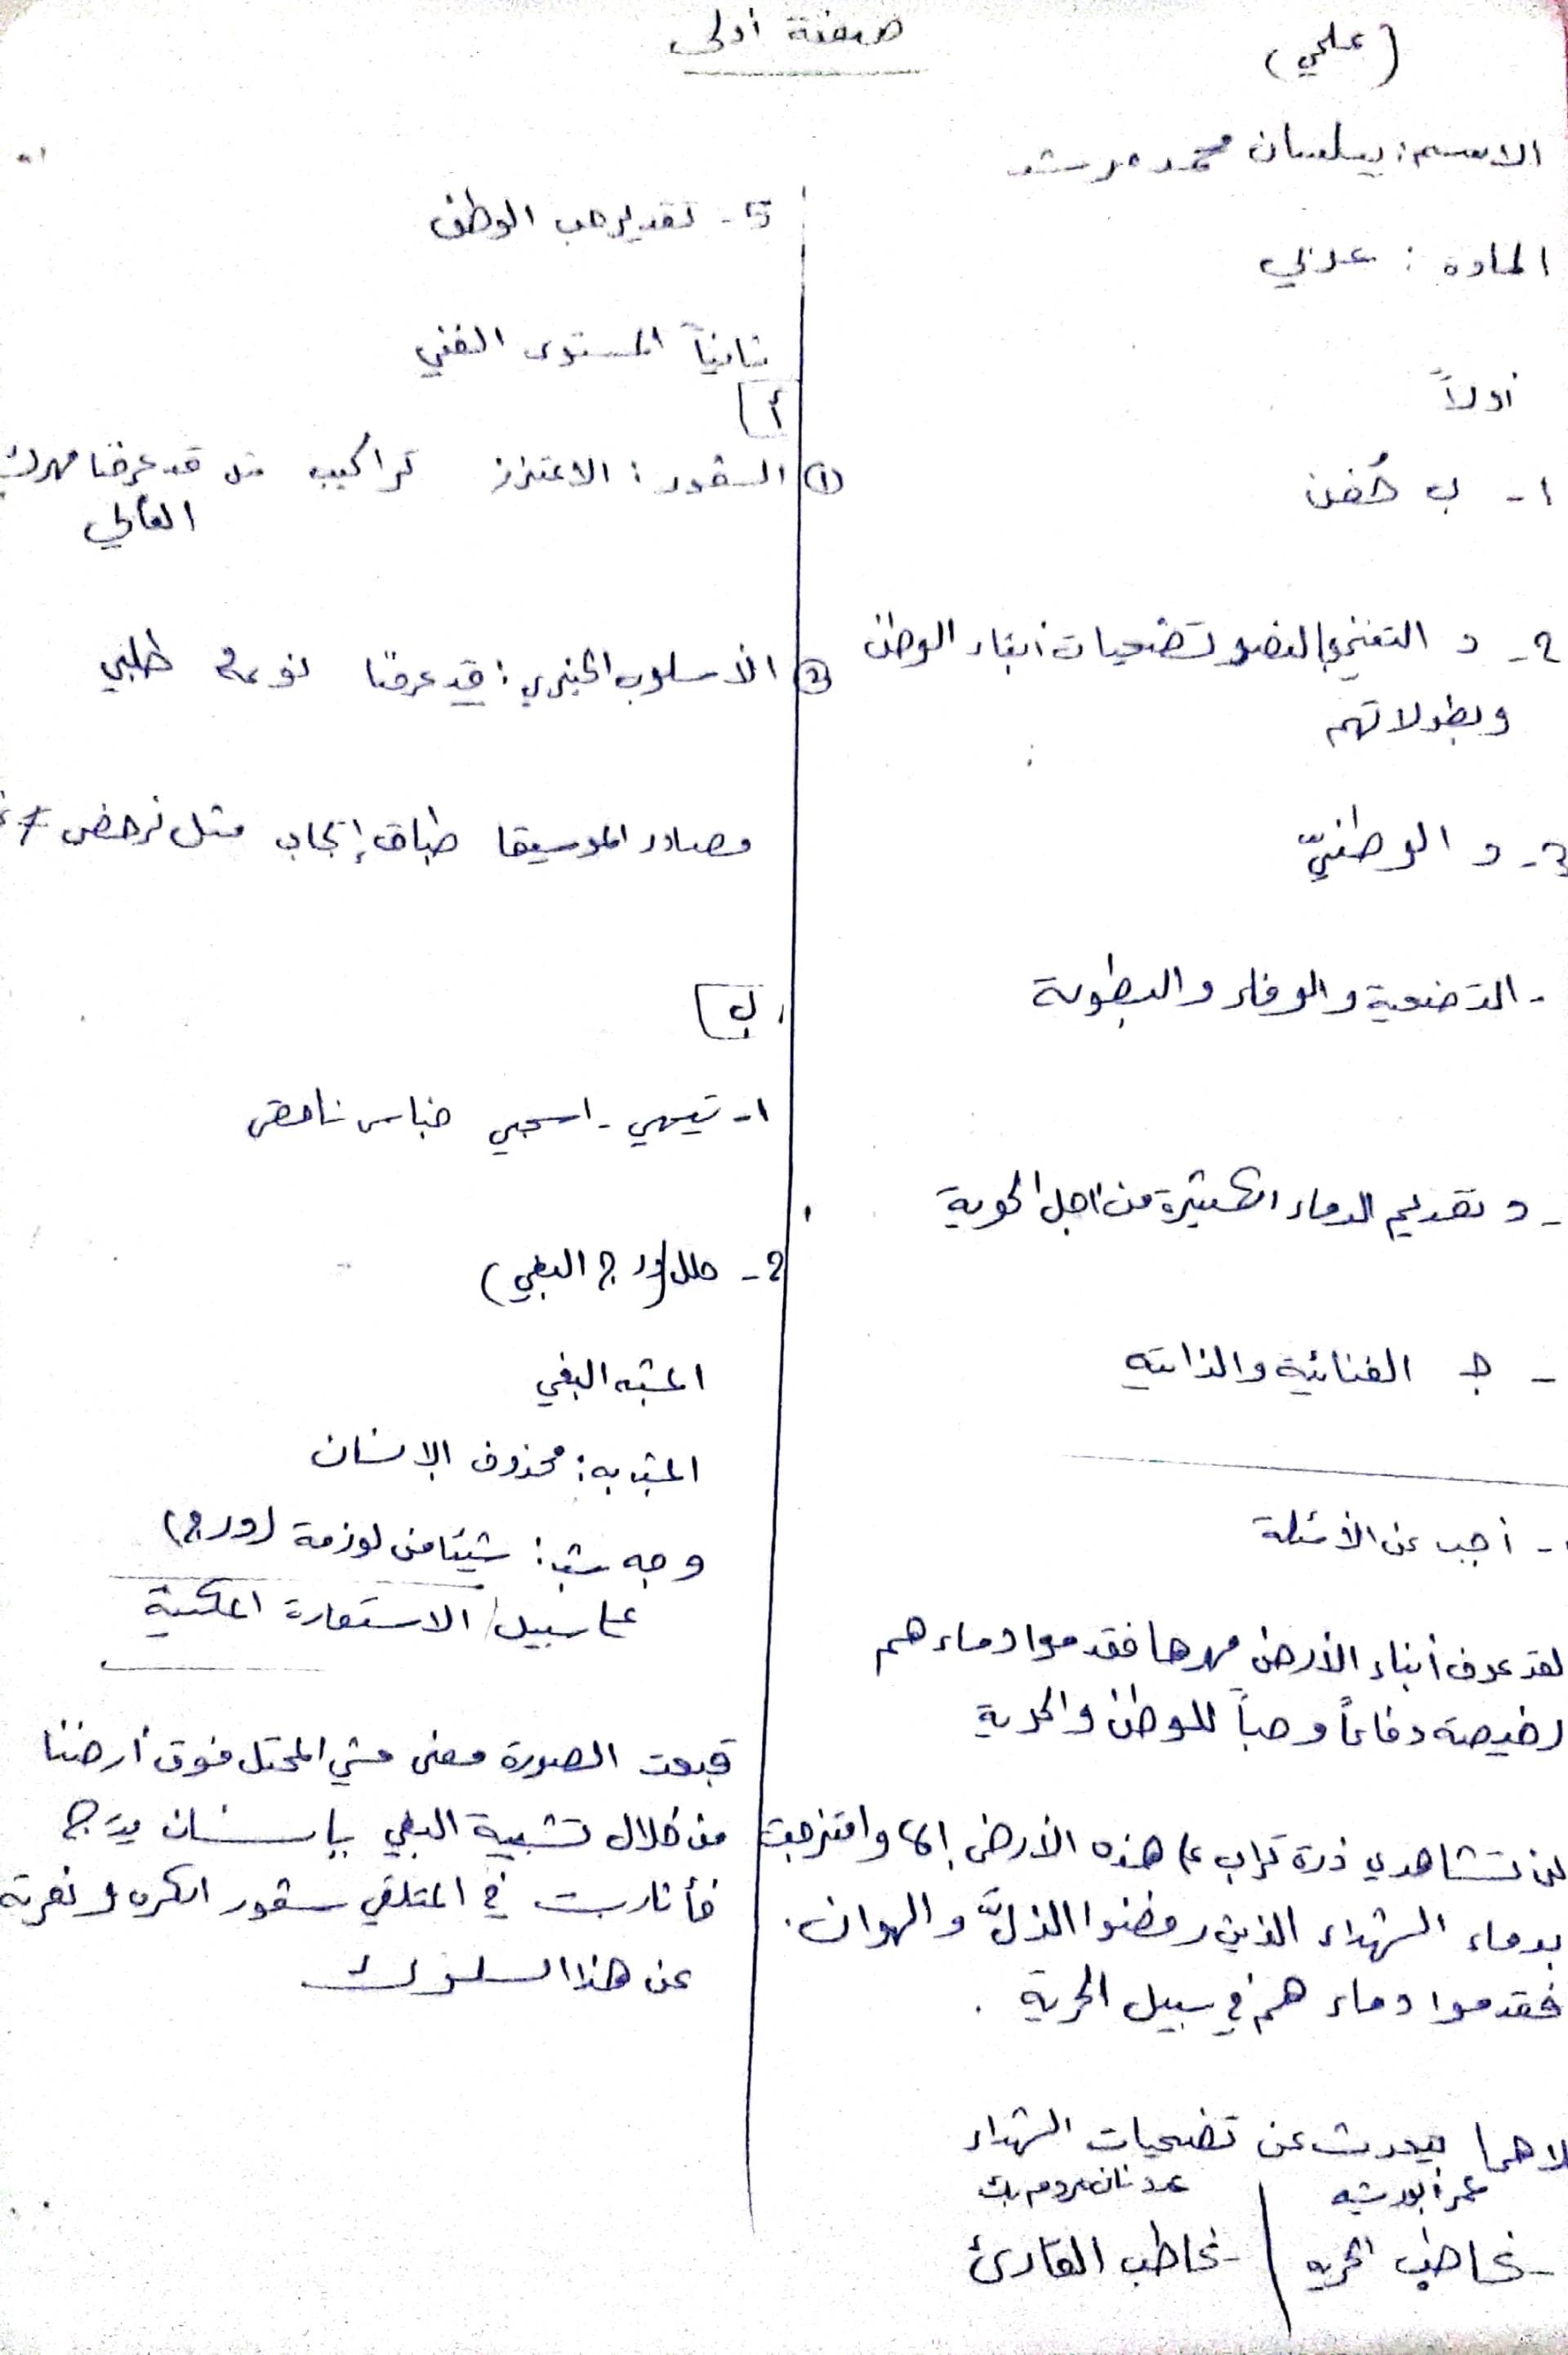 صفحة أولى
(علمي)
الاسم: بيلسان محمد مرشد
المادة: عربي
أولاً
1- ب حُضن
2- د التغني بالنصر وتضحيات أبناء الوطن
وبطولاتهم
3- د الوطنيّ
- التضحية والوفاء والبطولة
- د تقديم الدماء الكثيرة من أجل الحرية
- ج الغنائية والذاتية
- أجب عن الأسئلة
لقد عرف أبناء الأرض مهرها فقدموا دماءهم
رخيصة دفاعاً وحباً للوطن والحرية
لن تشاهدي ذرة تراب على هذه الأرض إلا وامتزجت
بدماء الشهداء الذين رفضوا الذلَّ والهوان.
فقدموا دماءهم في سبيل الحرية.
كلاهما يتحدث عن تضحيات الشهداء
عمر أبو ريشة
عدنان مردم بك
- يخاطب الحرية
- يخاطب القارئ
5- تقدير حب الوطن
ثانياً المستوى الفني
أ
① الشعور: الاعتزاز تراكيب مثل قد عرفنا مهرك
الغالي
② الأسلوب الخبري: قد عرفنا نوعه طلبي
مصادر الموسيقا طباق إيجاب مثل نرخص ≠
ب
1- تيهي - اسحبي جناس ناقص
2- حلل (درج البغي)
المشبه البغي
المشبه به: محذوف الإنسان
وجه شبه: شيئا من لوزمة (درج)
على سبيل الاستعارة المكنية
قبحت الصورة معنى مشي المحتل فوق أرضنا
من خلال تشبيه البغي بإنسان يدرج
فأثارت في المتلقي شعور الكره ونفرته
عن هذا السلوك